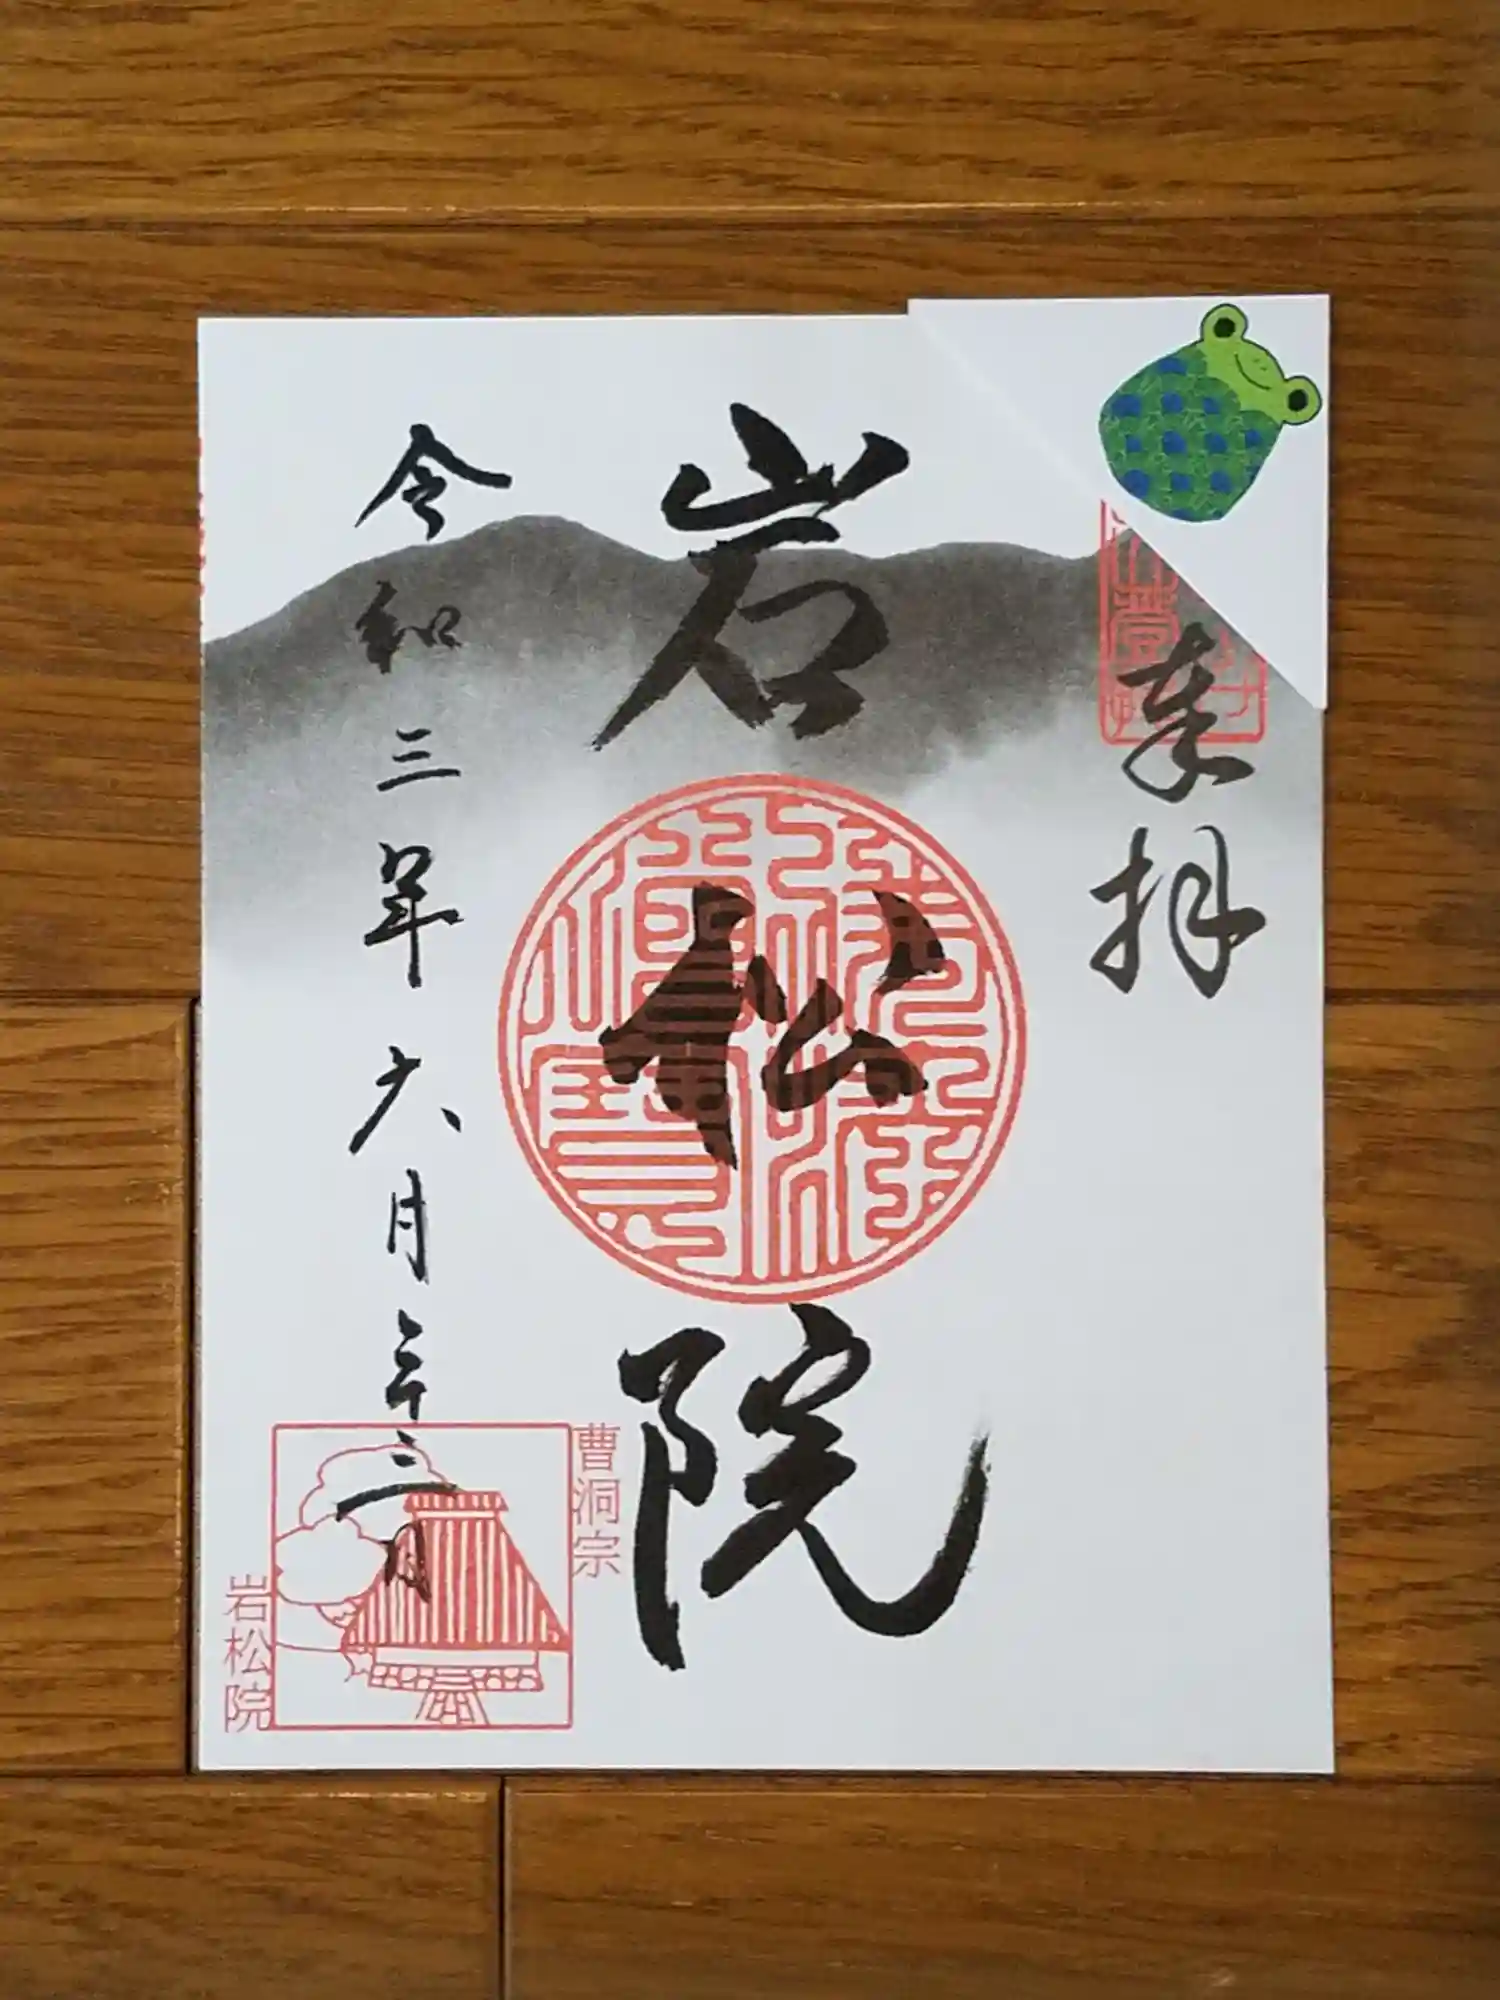 奉拝
岩松院
曹洞宗
令和三年六月三十三日
岩松院